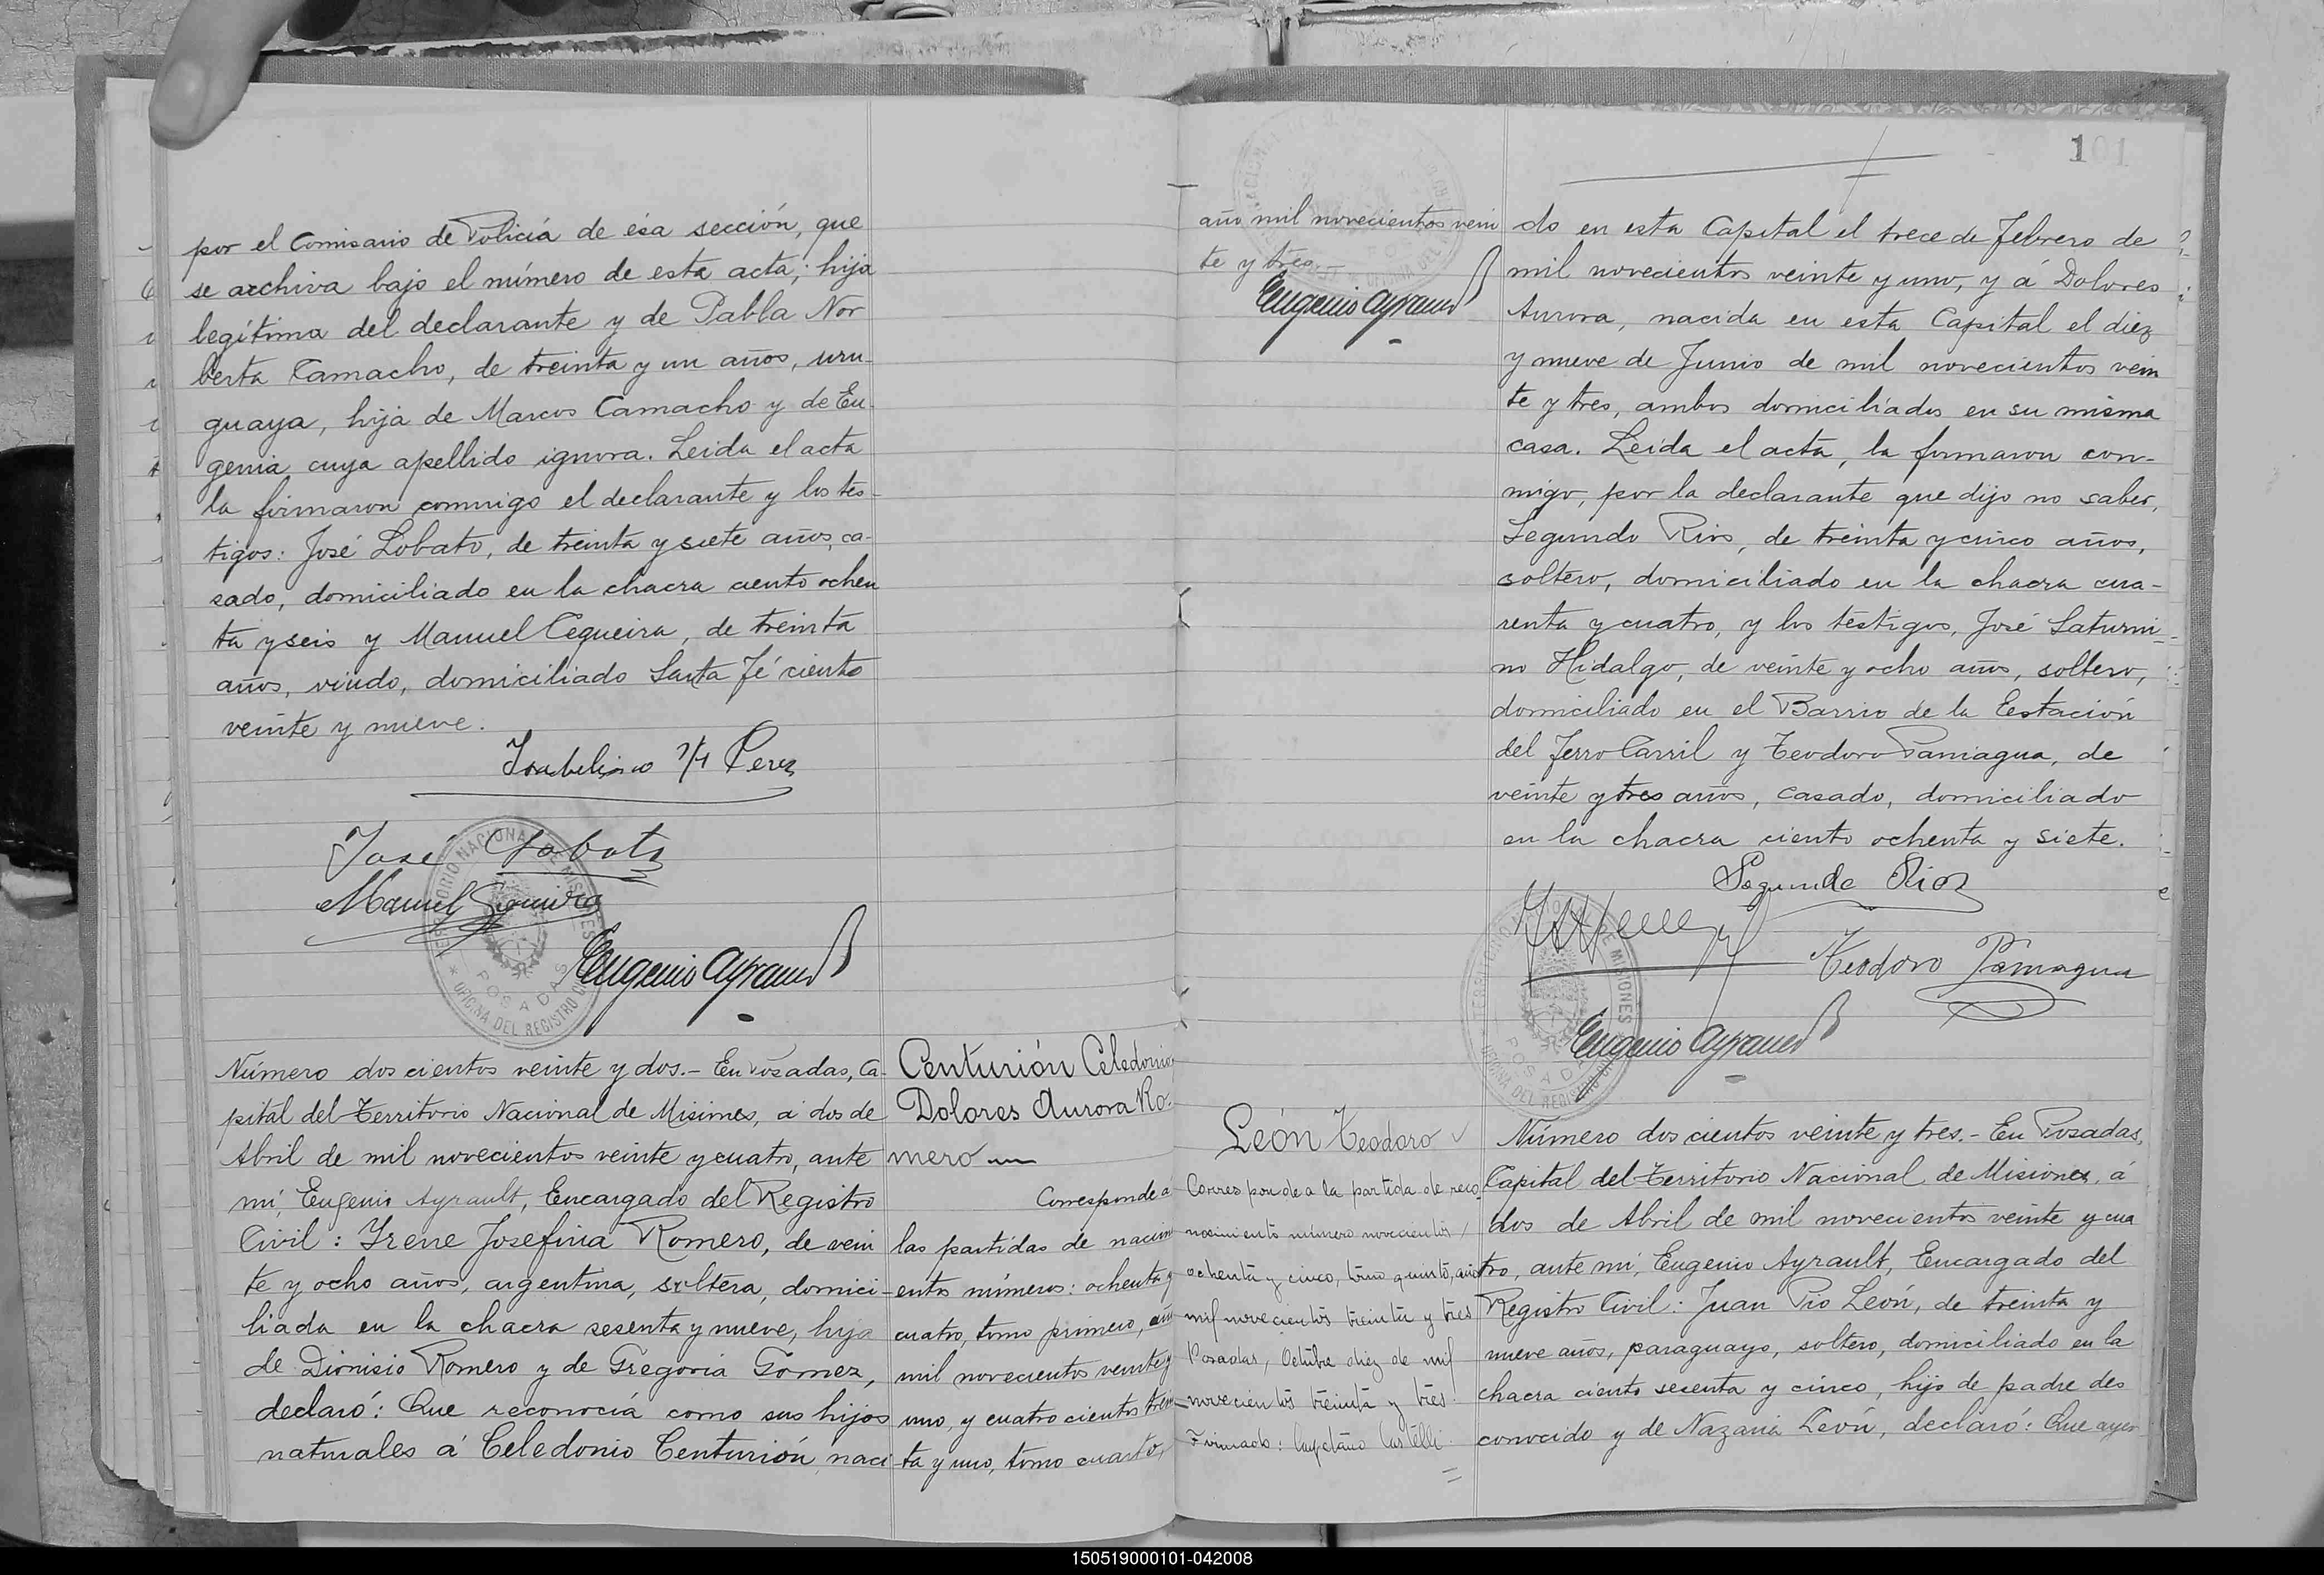 por el Comisario de Policía de ésa sección, que
se archiva bajo el número de esta acta; hija
legítima del declarante y de Pabla Nor
berta Camacho, de treinta y un años, uru-
guaya, hija de Marcos Camacho y de Eu-
genia cuya apellido ignora. Leida el acta
la firmaron conmigo el declarante y los tes-
tigos: José Lobato, de treinta y siete años, ca-
sado, domiciliado en la chacra ciento ochen
ta y seis y Manuel Cequeira, de treinta
años, viudo, domiciliado Santa Fé ciento
veinte y nueve.
Perez
José Lobato
Manuel
TERRITORIO NACIONAL DE MISIONES
POSADAS
OFICINA DEL REGISTRO CIVIL
Eugenio Ayrault
Número dos cientos veinte y dos.- En Posadas, Ca-
pital del Territorio Nacional de Misiones, á dos de
Abril de mil novecientos veinte y cuatro, ante
mi, Eugenio Ayrault, Encargado del Registro
Civil: Irene Josefina Romero, de vein
te y ocho años, argentina, soltera, domici-
liada en la chacra sesenta y nueve, hija
de Dionisio Romero y de Gregoria Gomez,
declaró: Que reconocía como sus hijos
naturales á Celedonio Centurión, naci
Centurión Celedonio
Dolores Aurora Ro-
mero
Corresponde a
las partidas de nacim
entos números: ochenta y
cuatro, tomo primero, año
mil novecientos veinte y
uno, y cuatro cientos trein
ta y uno, tomo cuarto,
año mil novecientos vein
te y tres
Eugenio Ayrault
León Teodoro
Corresponde a la partida de reco-
nocimiento número novecientos
ochenta y cinco, tomo quinto, año
mil novecientos treinta y tres
Posadas, Octubre diez de mil
novecientos treinta y tres.
Firmado: Cayetano Castelli
101
do en esta Capital el trece de Febrero de
mil novecientos veinte y uno, y á Dolores
Aurora, nacida en esta Capital el diez
y nueve de Junio de mil novecientos vein
te y tres, ambos domiciliados en su misma
casa. Leida el acta, la firmaron con-
migo, por la declarante que dijo no saber,
Segundo Rios, de treinta y cinco años,
soltero, domiciliado en la chacra cua-
renta y cuatro, y los testigos, José Saturni-
no Hidalgo, de veinte y ocho años, soltero,
domiciliado en el Barrio de la Estación
del Ferro Carril y Teodoro Paniagua, de
veinte y tres años, casado, domiciliado
en la chacra ciento ochenta y siete.
Segundo Rios
Teodoro Paniagua
TERRITORIO NACIONAL DE MISIONES
POSADAS
OFICINA DEL REGISTRO CIVIL
Eugenio Ayrault
Número dos cientos veinte y tres.- En Posadas,
Capital del Territorio Nacional de Misiones, á
dos de Abril de mil novecientos veinte y cua
tro, ante mi, Eugenio Ayrault, Encargado del
Registro Civil: Juan Pio León, de treinta y
nueve años, paraguayo, soltero, domiciliado en la
chacra ciento sesenta y cinco, hijo de padre des
conocido y de Nazaria León, declaró: Que ayer
150519000101-042008